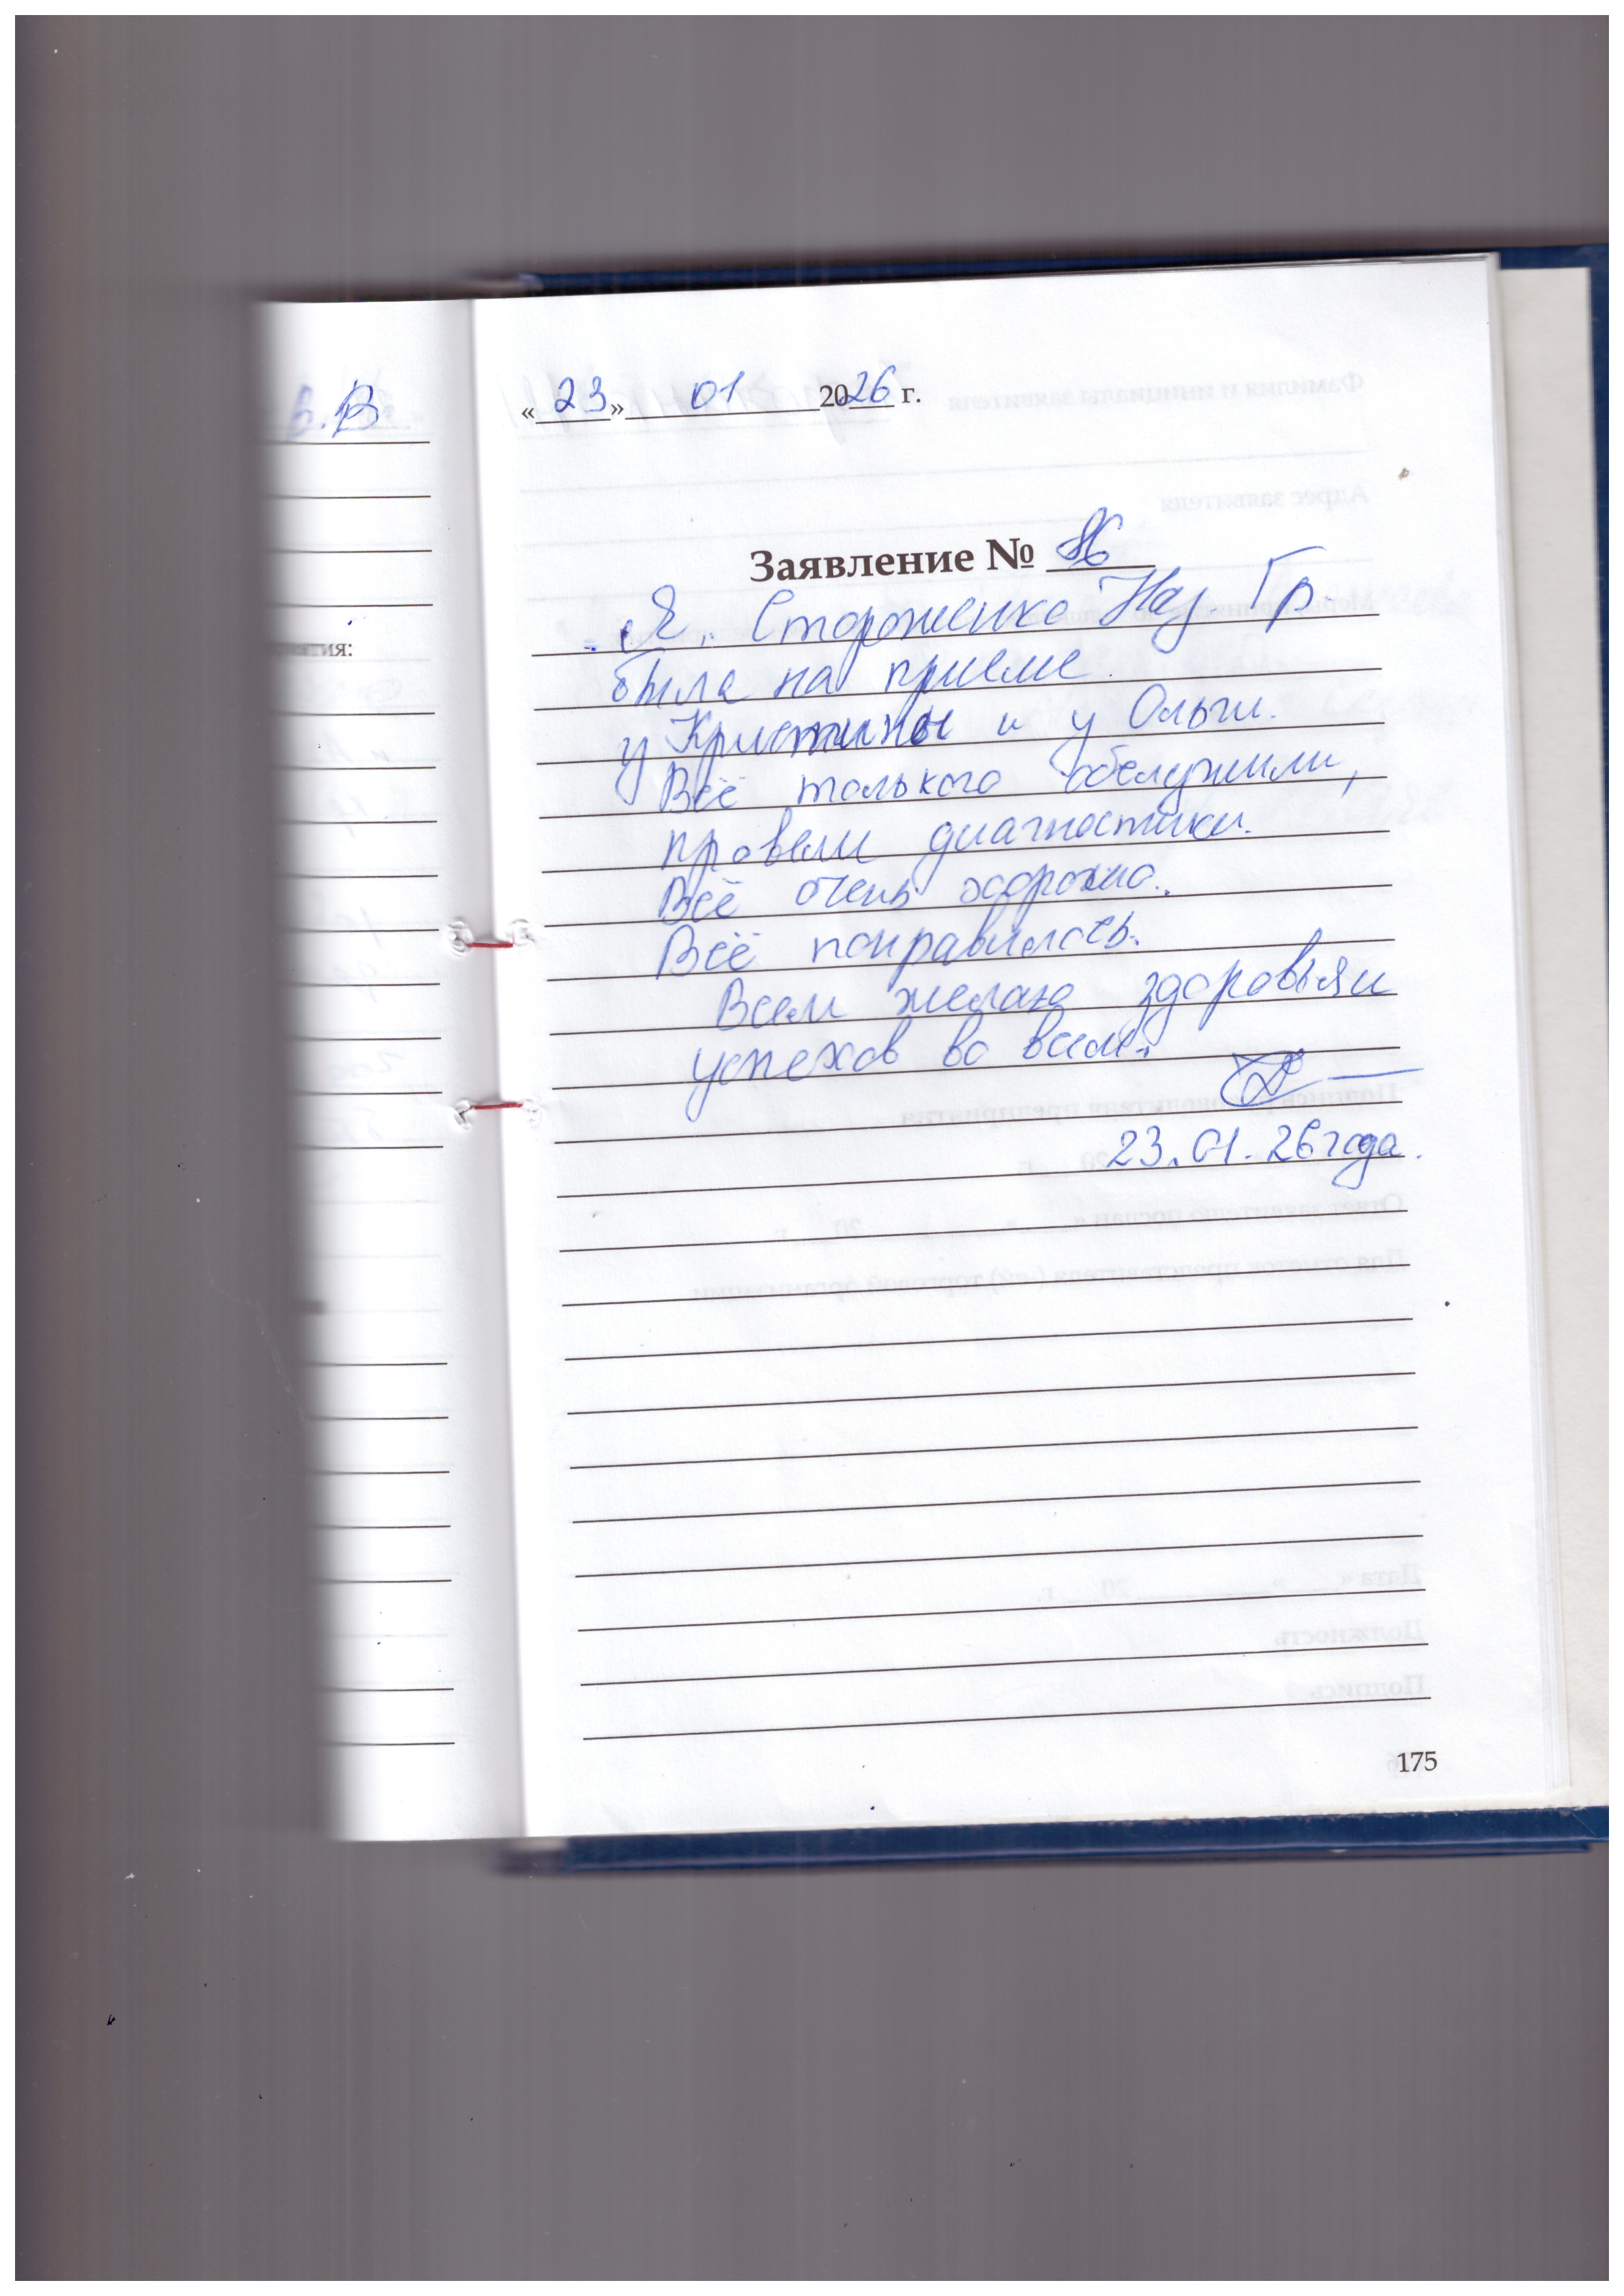 В.В
«23» 01 2026 г.
Заявление № 86
Я, Стороженко Над. Гр.
была на приеме
у Кристины и у Ольги.
Всё толького обслужили,
провели диагностики.
Всё очень хорошо.
Всё понравилось.
Всем желаю здоровья и
успехов во всем.
23.01.26 года.
175